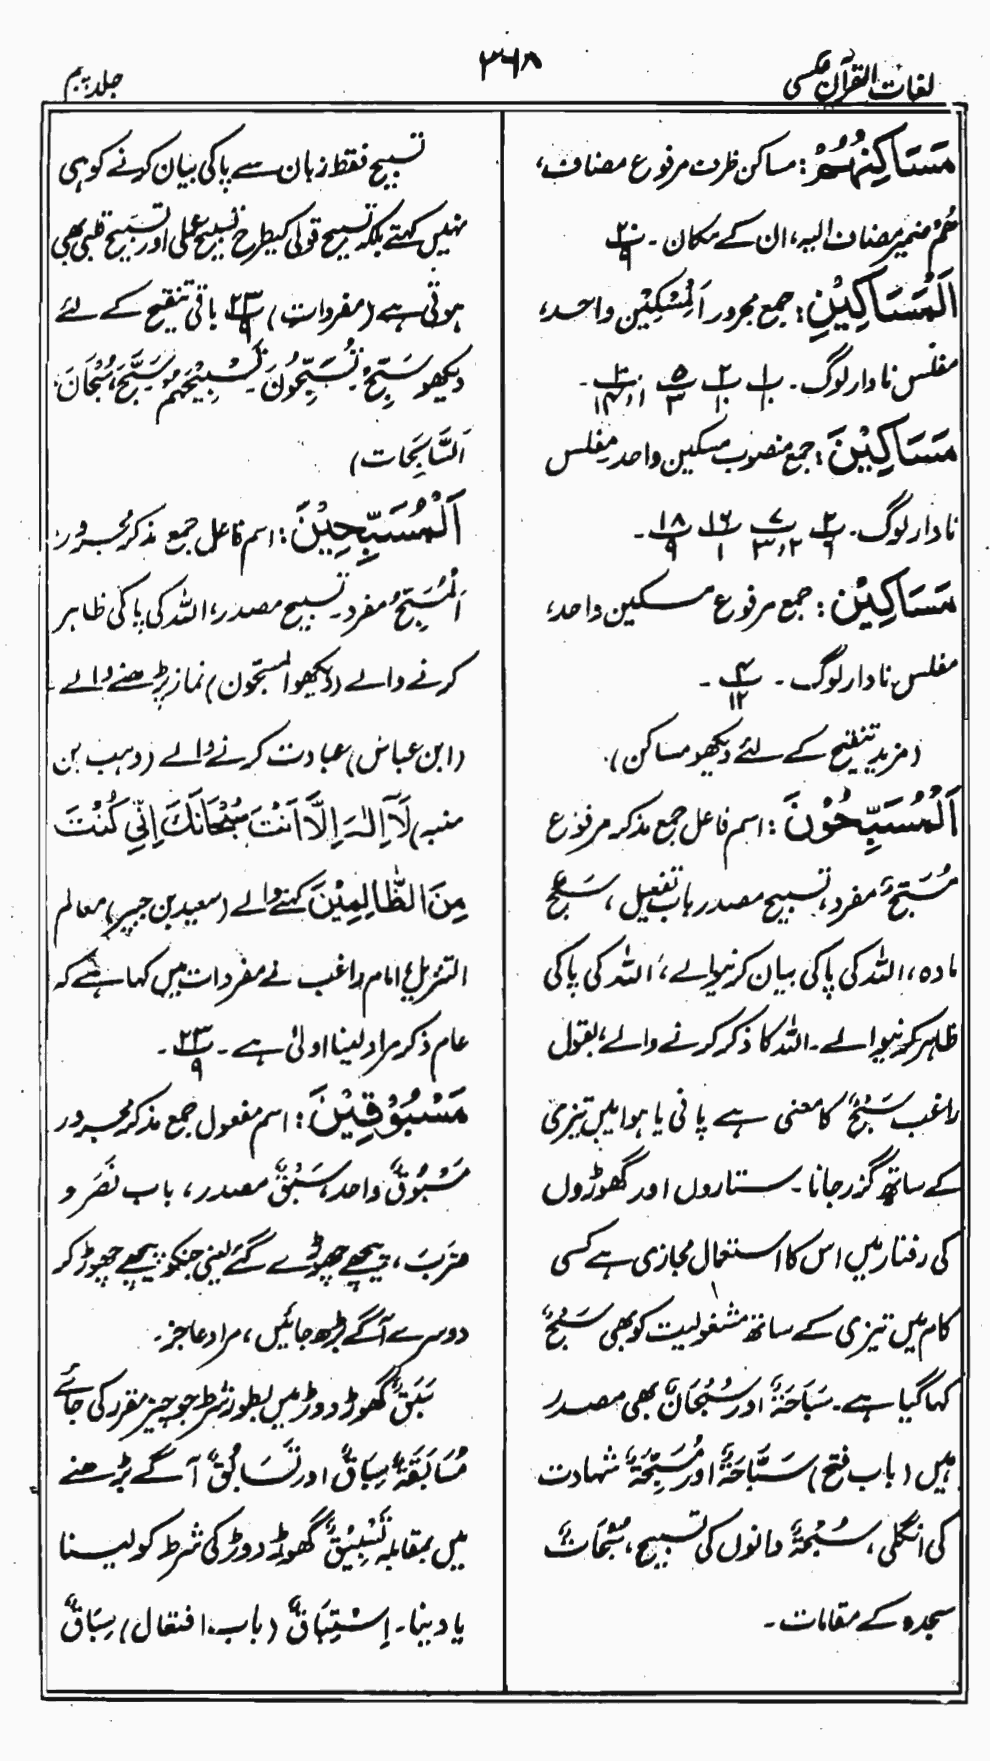 لغات القرآن عکسی
۳۶۸
جلد پنجم
مَسَاکِنُہُمْ: مساکن ظرف مرفوع مضاف،
ھُمْ ضمیر مضاف الیہ، ان کے مکان۔ ۲۰/۹
اَلْمَسَاکِیْنِ: جمع مجرور اَلْمِسْکِیْن واحد،
مفلس نادار لوگ۔ ۱/۱۰ ۲/۱۰ ۵/۳
مَسَاکِیْنَ: جمع منصوب مسکین واحد مفلس
نادار لوگ۔ ۲/۶ ۷/۳،۲ ۱۶/۱ ۱۸/۹۔
مَسَاکِیْن: جمع مرفوع مسکین واحد،
مفلس نادار لوگ۔ ۴/۱۲۔
(مزید تنقیح کے لئے دیکھو مساکن)۔
اَلْمُسَبِّحُوْنَ: اسم فاعل جمع مذکر مرفوع
مُسَبِّحٌ مفرد، تسبیح مصدر باب تفعیل، سَبْحٌ
مادہ، اللہ کی پاکی بیان کرنیوالے، اللہ کی پاکی
ظاہر کرنیوالے۔ اللہ کا ذکر کرنے والے، بقول
راغب سَبْحٌ کا معنی ہے پانی یا ہوا میں تیزی
کے ساتھ گزر جانا۔ ستاروں اور گھوڑوں
کی رفتار میں اس کا استعمال مجازی ہے کسی
کام میں تیزی کے ساتھ مشغولیت کو بھی سَبْحٌ
کہا گیا ہے۔ سَبَاحَۃٌ اور سُبْحَانٌ بھی مصدر
ہیں (باب فتح) سَبَّاحَۃٌ اور مُسَبِّحَۃٌ شہادت
کی انگلی، سُبْحَۃٌ دانوں کی تسبیح، سُبُحَاتٌ
سجدہ کے مقامات۔
تسبیح فقط زبان سے پاکی بیان کرنے کو ہی
نہیں کہتے بلکہ تسبیح قولی کیطرح تسبیح عملی اور تسبیح قلبی بھی
ہوتی ہے (مفردات) ۲۳/۹ باقی تنقیح کے لئے
دیکھو سَبِّحْ، تُسَبِّحُوْنَ، تَسْبِیْحَہُمْ، سَبَّحَ، سُبْحَانَ،
اَلسَّابِحَات)
اَلْمُسَبِّحِیْنَ: اسم فاعل جمع مذکر مجرور
اَلْمُسَبِّحُ مفرد۔ تسبیح مصدر، اللہ کی پاکی ظاہر
کرنے والے (دیکھو المسبحون) نماز پڑھنے والے
(ابن عباس) عبادت کرنے والے (وہب بن
منبہ) لَآ اِلٰہَ اِلَّا اَنْتَ سُبْحَانَکَ اِنِّیْ کُنْتُ
مِنَ الظَّالِمِیْنَ کہنے والے (سعید بن جبیر) معالم
التنزیل، امام راغب نے مفردات میں کہا ہے کہ
عام ذکر مراد لینا اولیٰ ہے۔ ۲۳/۹۔
مَسْبُوْقِیْنَ: اسم مفعول جمع مذکر مجرور
مَسْبُوْقٌ واحد، سَبْقٌ مصدر، باب نَصَرَ و
ضَرَبَ، پیچھے چھوڑے گئے یعنی جنکو پیچھے چھوڑ کر
دوسرے آگے بڑھ جائیں، مراد عاجز۔
سَبَقٌ گھوڑ دوڑ میں بطور شرط جو چیز مقرر کی جائے
مُسَابَقَۃٌ، سِبَاقٌ اور تَسَابُقٌ آگے بڑھنے
میں بمقابلہ تَسْبِیْقٌ گھوڑ دوڑ کی شرط کو لینا
یا دینا۔ اِسْتِبَاقٌ (باب افتعال) سِبَاقٌ